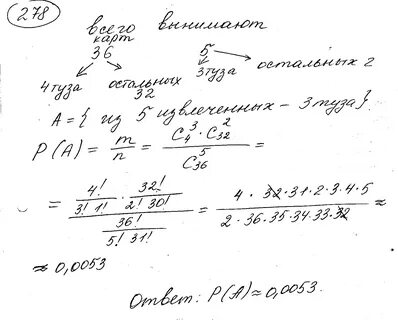 278
всего вынимают
карт
36 5
4туза остальных 3туза остальных 2
32
A = { из 5 извлеченных – 3 туза }.
P(A) = m/n = C₄³ · C₃₂² / C₃₆⁵ =
= (4!/(3! 1!) · 32!/(2! 30!)) / (36!/(5! 31!)) = (4 · 32 · 31 · 2 · 3 · 4 · 5)/(2 · 36 · 35 · 34 · 33 · 32) ≈
≈ 0,0053
Ответ: P(A) ≈ 0,0053.